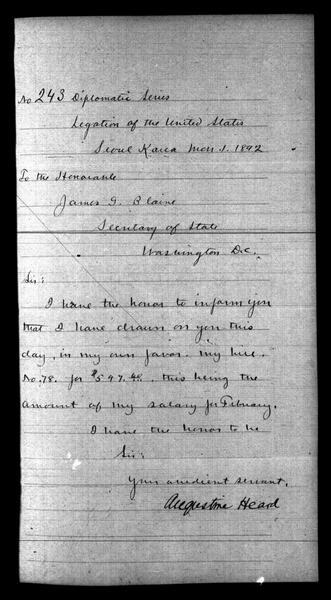 No 243 Diplomatic Series
Legation of the United States
Seoul Korea Mch. 1. 1892
To the Honorable
James G. Blaine
Secretary of State
Washington D.C.
Sir:
I have the honor to inform you
that I have drawn on you this
day, in my own favor. my
No. 78. for $597. this being the
amount of my salary for February.
I have the honor to be
Sir:
Your obedient servant,
Augustine Heard